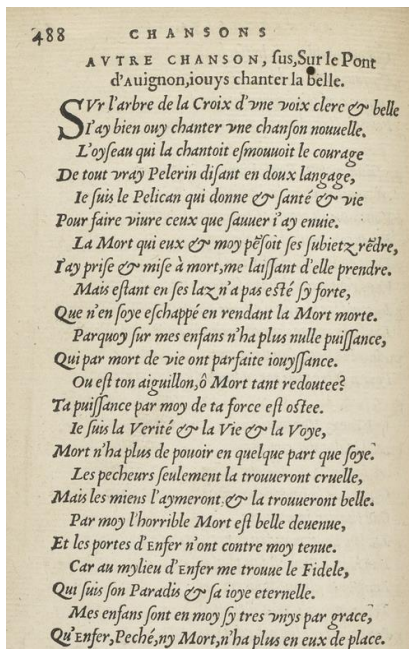 488 CHANSONS
AVTRE CHANSON, sus, Sur le Pont
d'Auignon, iouys chanter la belle.
SVr l'arbre de la Croix d'vne voix clere & belle
I'ay bien ouy chanter vne chanſon nouuelle.
L'oyſeau qui la chantoit eſmouuoit le courage
De tout vray Pelerin diſant en doux langage,
Ie ſuis le Pelican qui donne & ſanté & vie
Pour faire viure ceux que ſauuer i'ay enuie.
La Mort qui eux & moy pẽſoit ſes ſubietz rẽdre,
I'ay priſe & miſe à mort, me laiſſant d'elle prendre.
Mais eſtant en ſes laz n'a pas eſté ſy forte,
Que n'en ſoye eſchappé en rendant la Mort morte.
Parquoy ſur mes enfans n'ha plus nulle puiſſance,
Qui par mort de vie ont parfaite iouyſſance.
Ou eſt ton aiguillon, ô Mort tant redoutee?
Ta puiſſance par moy de ta force eſt oſtee.
Ie ſuis la Verité & la Vie & la Voye,
Mort n'ha plus de pouoir en quelque part que ſoye.
Les pecheurs ſeulement la trouueront cruelle,
Mais les miens l'aymeront & la trouueront belle.
Par moy l'horrible Mort eſt belle deuenue,
Et les portes d'Enfer n'ont contre moy tenue.
Car au mylieu d'Enfer me trouue le Fidele,
Qui ſuis ſon Paradis & ſa ioye eternelle.
Mes enfans ſont en moy ſy tres vnys par grace,
Qu'Enfer, Peché, ny Mort, n'ha plus en eux de place.